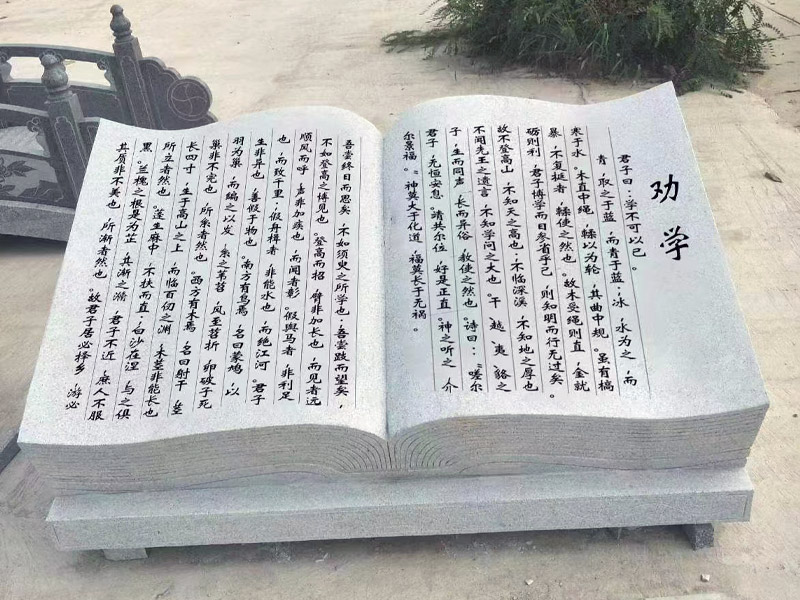 劝学
君子曰:学不可以已。
青,取之于蓝,而青于蓝;冰,水为之,而
寒于水。木直中绳,輮以为轮,其曲中规。虽有槁
暴,不复挺者,輮使之然也。故木受绳则直,金就
砺则利,君子博学而日参省乎己,则知明而行无过矣。
故不登高山,不知天之高也;不临深溪,不知地之厚也
不闻先王之遗言,不知学问之大也。干、越、夷、貉之
子,生而同声,长而异俗,教使之然也。诗曰:“嗟尔
君子,无恒安息。靖共尔位,好是正直。神之听之,介
尔景福。”神莫大于化道,福莫长于无祸。
吾尝终日而思矣,不如须臾之所学也;吾尝跂而望矣,
不如登高之博见也。登高而招,臂非加长也,而见者远
顺风而呼,声非加疾也,而闻者彰。假舆马者,非利足
也,而致千里;假舟楫者,非能水也,而绝江河。君子
生非异也,善假于物也。南方有鸟焉,名曰蒙鸠,以
羽为巢,而编之以发,系之苇苕,风至苕折,卵破子死
巢非不完也,所系者然也。西方有木焉,名曰射干,茎
长四寸,生于高山之上,而临百仞之渊,木茎非能长也
所立者然也。蓬生麻中,不扶而直;白沙在涅,与之俱
黑。兰槐之根是为芷,其渐之滫,君子不近,庶人不服
其质非不美也,所渐者然也。故君子居必择乡,游必